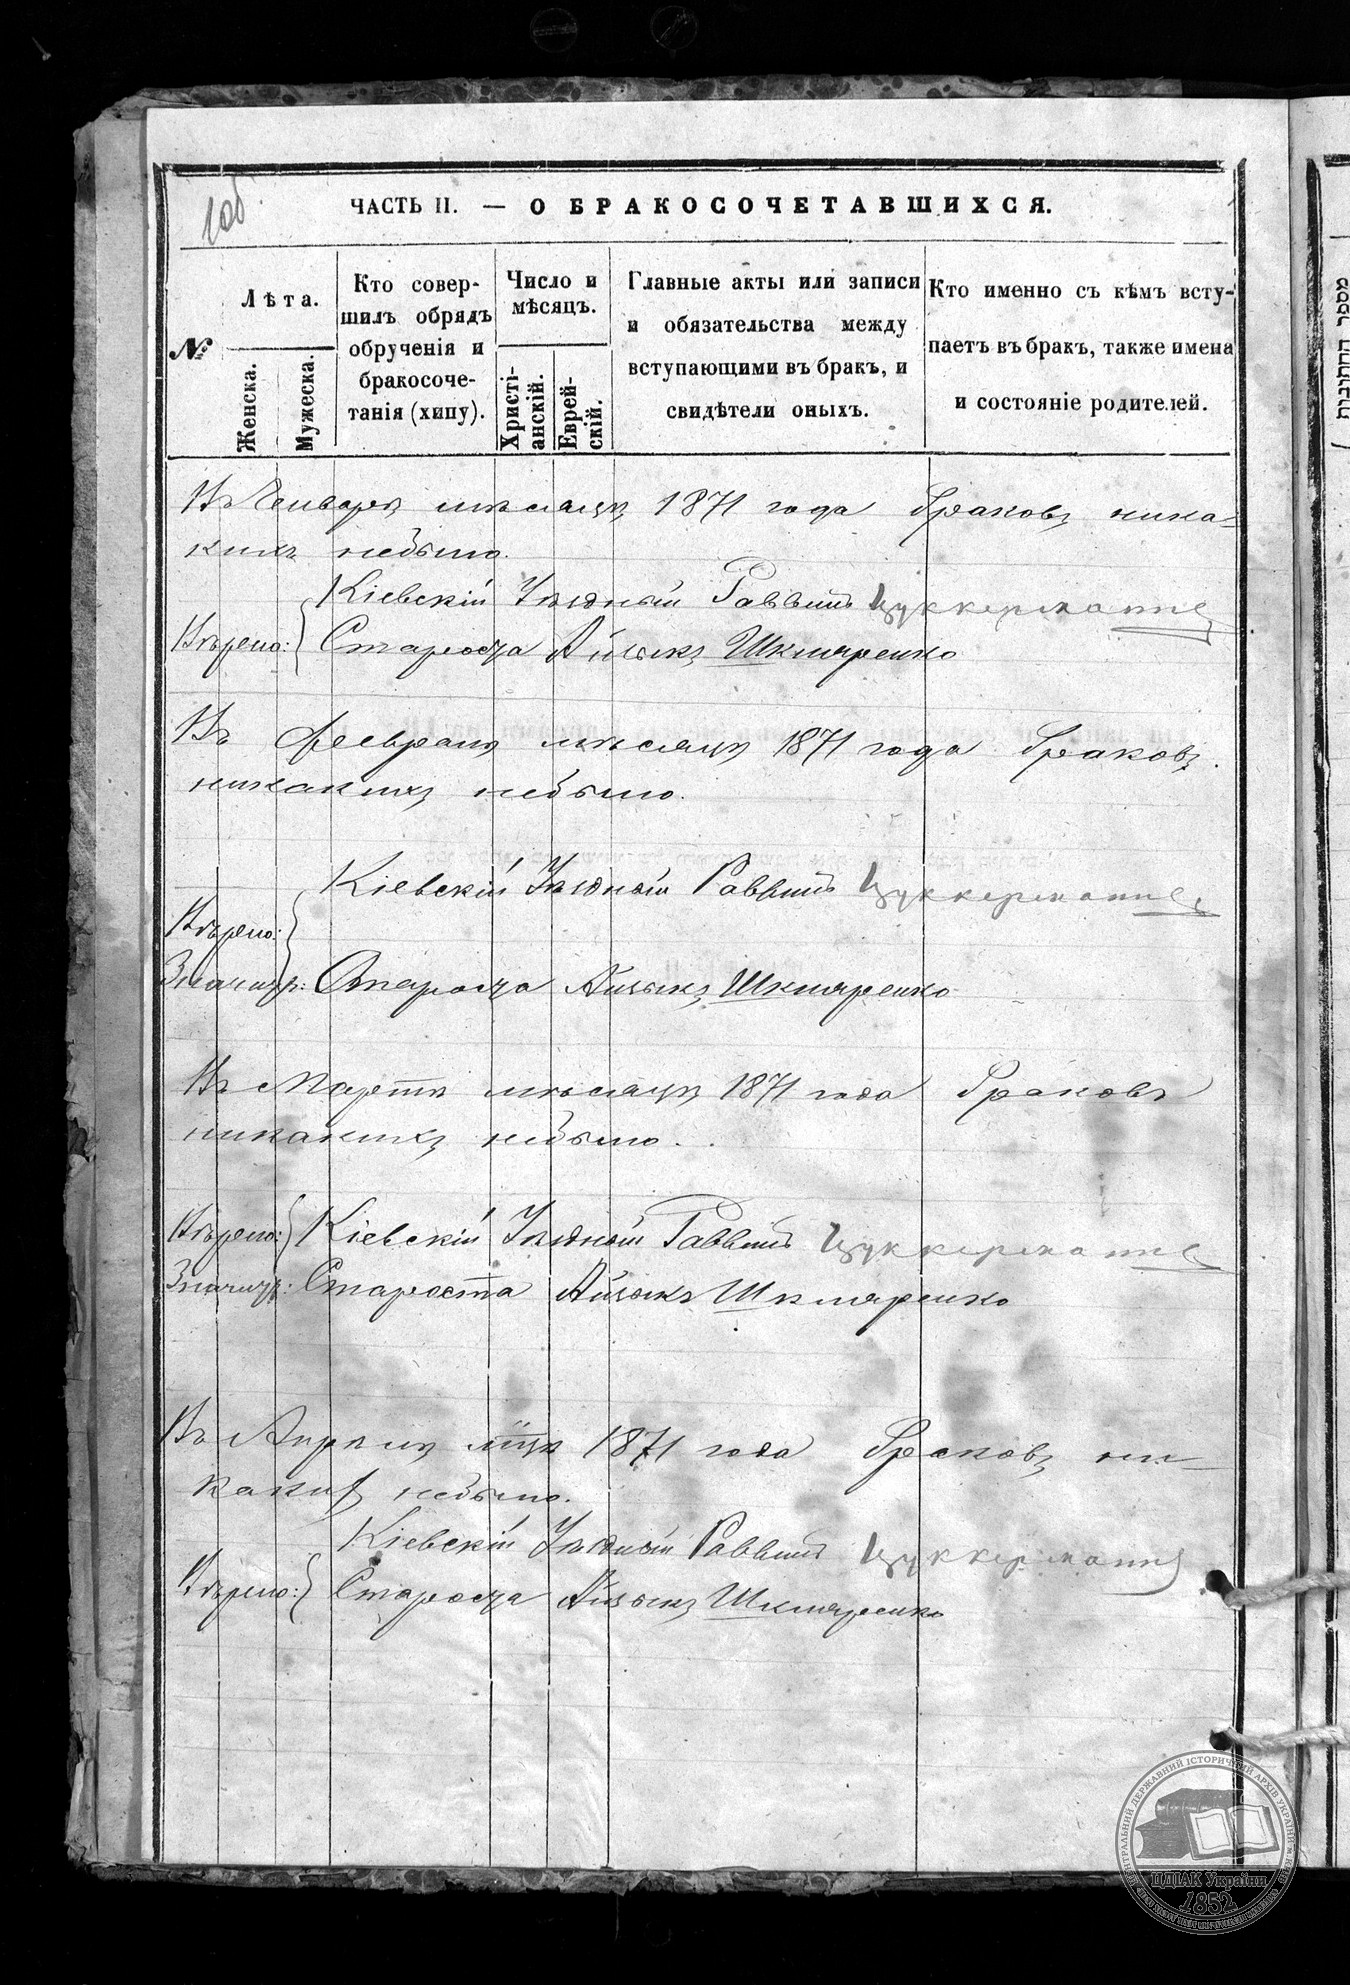 1об.
ЧАСТЬ II. — О БРАКОСОЧЕТАВШИХСЯ.
№
Лѣта.
Женска.
Мужеска.
Кто совер-
шилъ обрядъ
обрученія и
бракосоче-
танія (хипу).
Число и
мѣсяцъ.
Христі-
анскій.
Еврей-
скій.
Главные акты или записи
и обязательства между
вступающими въ бракъ, и
свидѣтели оныхъ.
Кто именно съ кѣмъ всту-
паетъ въ бракъ, также имена
и состояніе родителей.
Въ Январѣ мѣсяцѣ 1871 года браковъ ника-
кихъ небыло.
Кіевскій Уѣздный Раввинъ Цуккерманъ
Вѣрно: Староста Айзыкъ Шкляренко
Въ Февралѣ мѣсяцѣ 1871 года браковъ
никакихъ небыло.
Кіевскій Уѣздный Раввинъ Цуккерманъ
Вѣрно:
Староста Айзыкъ Шкляренко
Въ Мартѣ мѣсяцѣ 1871 года браковъ
никакихъ небыло.
Вѣрно: Кіевскій Уѣздный Раввинъ Цуккерманъ
Староста Айзыкъ Шкляренко
Въ Апрѣлѣ мцѣ 1871 года браковъ ни-
какихъ небыло.
Кіевскій Уѣздный Раввинъ Цуккерманъ
Вѣрно: Староста Айзыкъ Шкляренко
מספר החתונות
ЦЕНТРАЛЬНИЙ ДЕРЖАВНИЙ ІСТОРИЧНИЙ АРХІВ УКРАЇНИ М. КИЇВ
ЦДІАК України
1852